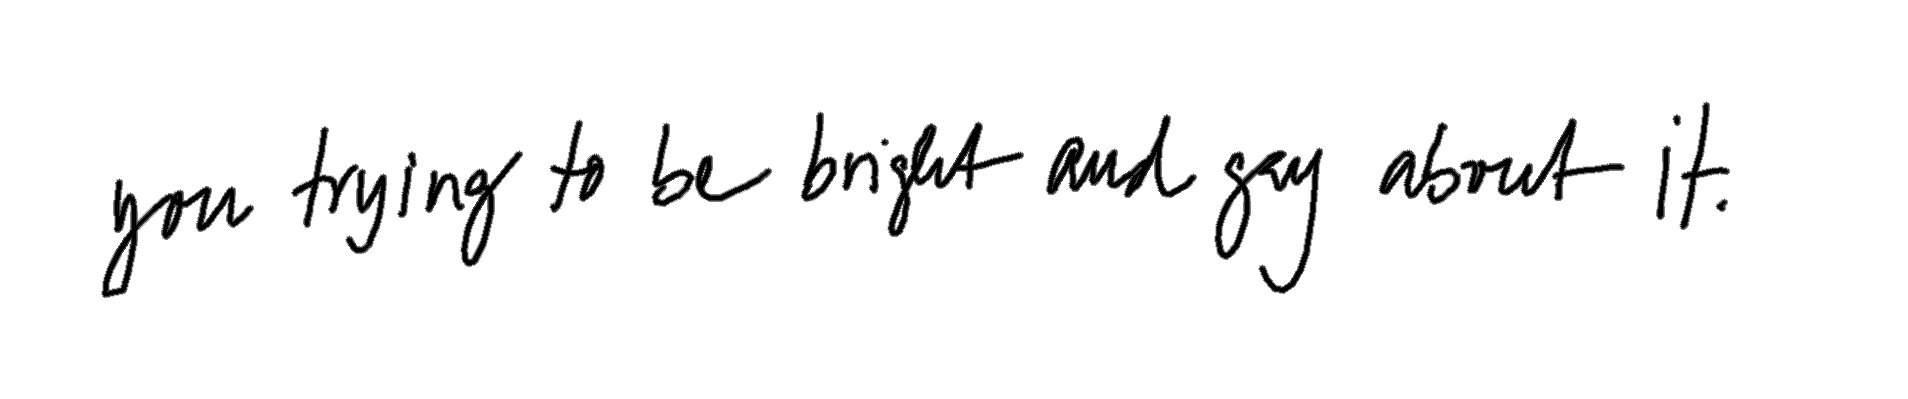 you trying to be bright and gay about it.